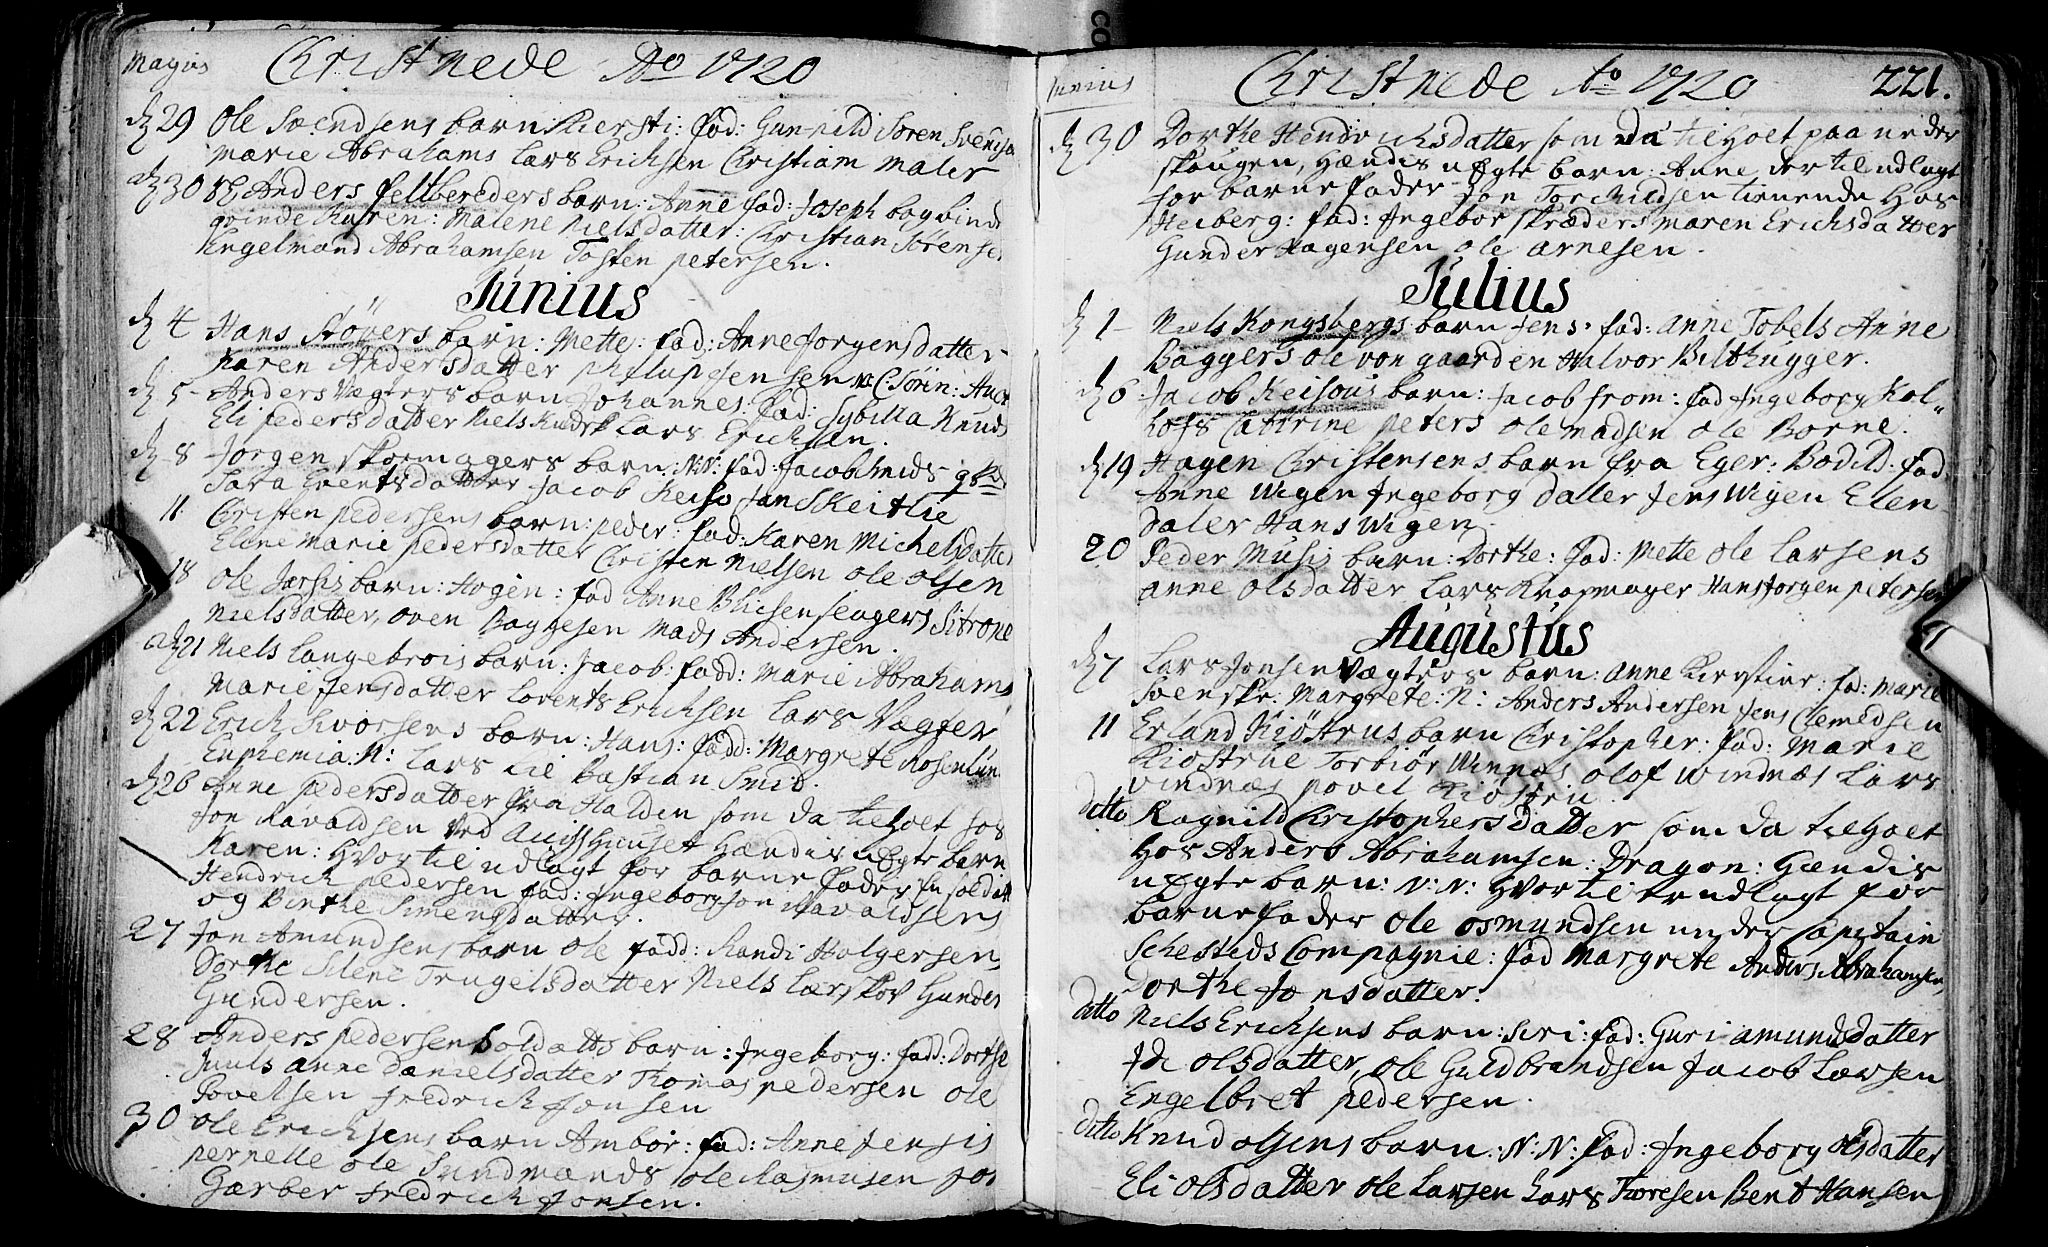 Majus Christnede Ao 1720
d 29 Ole Svendsens barn Kiersti: fad: Gunnild Søren Svends
Marie Abrahams Lars Ericksen Christian Maler
d 30 Anders Feltbereders barn: Anne fad: Joseph bogbind
grinde Karen: Malene Nielsdatter: Christian Sørense
Engelmand Abrahamsen Tosten petersen.
Junius
d 4 Hans Støvers barn: Mette: fad: Anne Jorgensdatter
Karen Andersdatter
d 5 Anders Vægters barn Johannes: fad: Sybilla Knuds
Eli peders datter Niels Lars Ericksen.
d 8 Jorgen skomagers barn: N:N: fad: Jacob smids
Sara Evertsdatter Jacob Keiso Jan Skeitlie
11 Christen pedersens barn: peder: fad: Karen Michelsdatter
Elene Marie pedersdatter Christen Nielsen ole olsen
18 ole barn: Hogen: fad Anne Sitrone
Nielsdatter, oven Baggesen Mads Andersen.
d 21 Niels Langebrois barn: Jacob: fadd: Marie Abrahams
Marie Jensdatter Lorents Ericksen Lars Vægter
d 22 Erick Ivorsens barn: Hans: fadd: Margrete Rosenlun
Euphemia: N: Lars Lie Bastian Smid.
d 26 Anne pedersdatter fra Halden som da tilholt hos
Jon Havaldsen ved Huuset Hændis uægte barn
Karen: Hvortil udlagt for barne fader En soldat
Hendrick pedersen fad: Ingeborg Jon Havaldsens
og Birthe Simensdatter.
27 Jon Amundsens barn Ole fadd: Randi Holgersen,
Dorthe Silene Trugelsdatter Niels Lærskov Gunder
Gundersen.
28 Anders pedersen Soldatts barn: Ingeborg: fadd: Dorthe
Juuls anne Danielsdatter Thomas pedersen ole
Povelsen fredrick Jonsen
30 ole Ericksens barn Ambor: fad: Anne Jensis
pernelle ole Sundmænds ole Rasmusen Jon
Gærber fredrick Jonsen.
Junius Christnede Ao 1720 221.
d 30 Dorthe Hendricksdatter som da tilholt paa neder
skougen, Hændis uægte barn: Anne der til udlagt
for barne fader Jon Torchildsen tienende Hos
Heiberg: fad: Ingebor skræders maren Ericksdatter
Gunder Hagensen ole arnesen.
Julius
d 1 Niels Kongsbergs barn Jens: fad: anne Tobels Anne
Baggers ole von gaarden Halvor Bilthugger.
d 6 Jacob Keisous barn: Jacob from: fad Ingeborg Kol-
kofs Catirine peters ole madsen ole Borne.
d 19 Hagen Christensens barn fra Eger: Bodild: fad:
Anne Wigen Ingeborg Daler Jens Wigen Elen
Daler Hans Wigen.
20 Peder Musis barn: Dorthe: fad: Mette ole Larsens
anne olsdatter Lars Knapmager Hans Jorgen petersen
Augustus
d 7 Lars Jonsen Vægters barn: Anne Kirstine: fad: Marie
Svenske: Margrete: N: Anders Andersen Jens Clemedsen
11 Erland Kiøstrus barn Christopher: fad: Marie
Kiøstrue Torbiør Winnes olof windnæs Lars
vindnæs povel Kiøstru.
ditto Ragnild Christophersdatter som da tilholt
Hos Anders Abrahamsen: Dragon: Hændis
uægte barn: N: N: Hvortil er udlagt for
barnefader Ole osmundsen under Captain
Schesteds Compagnie: fad Margrete Anders Abrahamsen,
Dorthe Jonsdatter.
ditto Niels Ericksens barn: Siri: fad: Guri amundsdatter
Ide olsdatter, ole Guldbrandsen Jacob Larsen
Engelbret pedersen.
ditto Knud olsens barn: N: N: fad: Ingeborg olsdatter
Eli olsdatter ole Larsen Lars Thoresen Bent Hansen